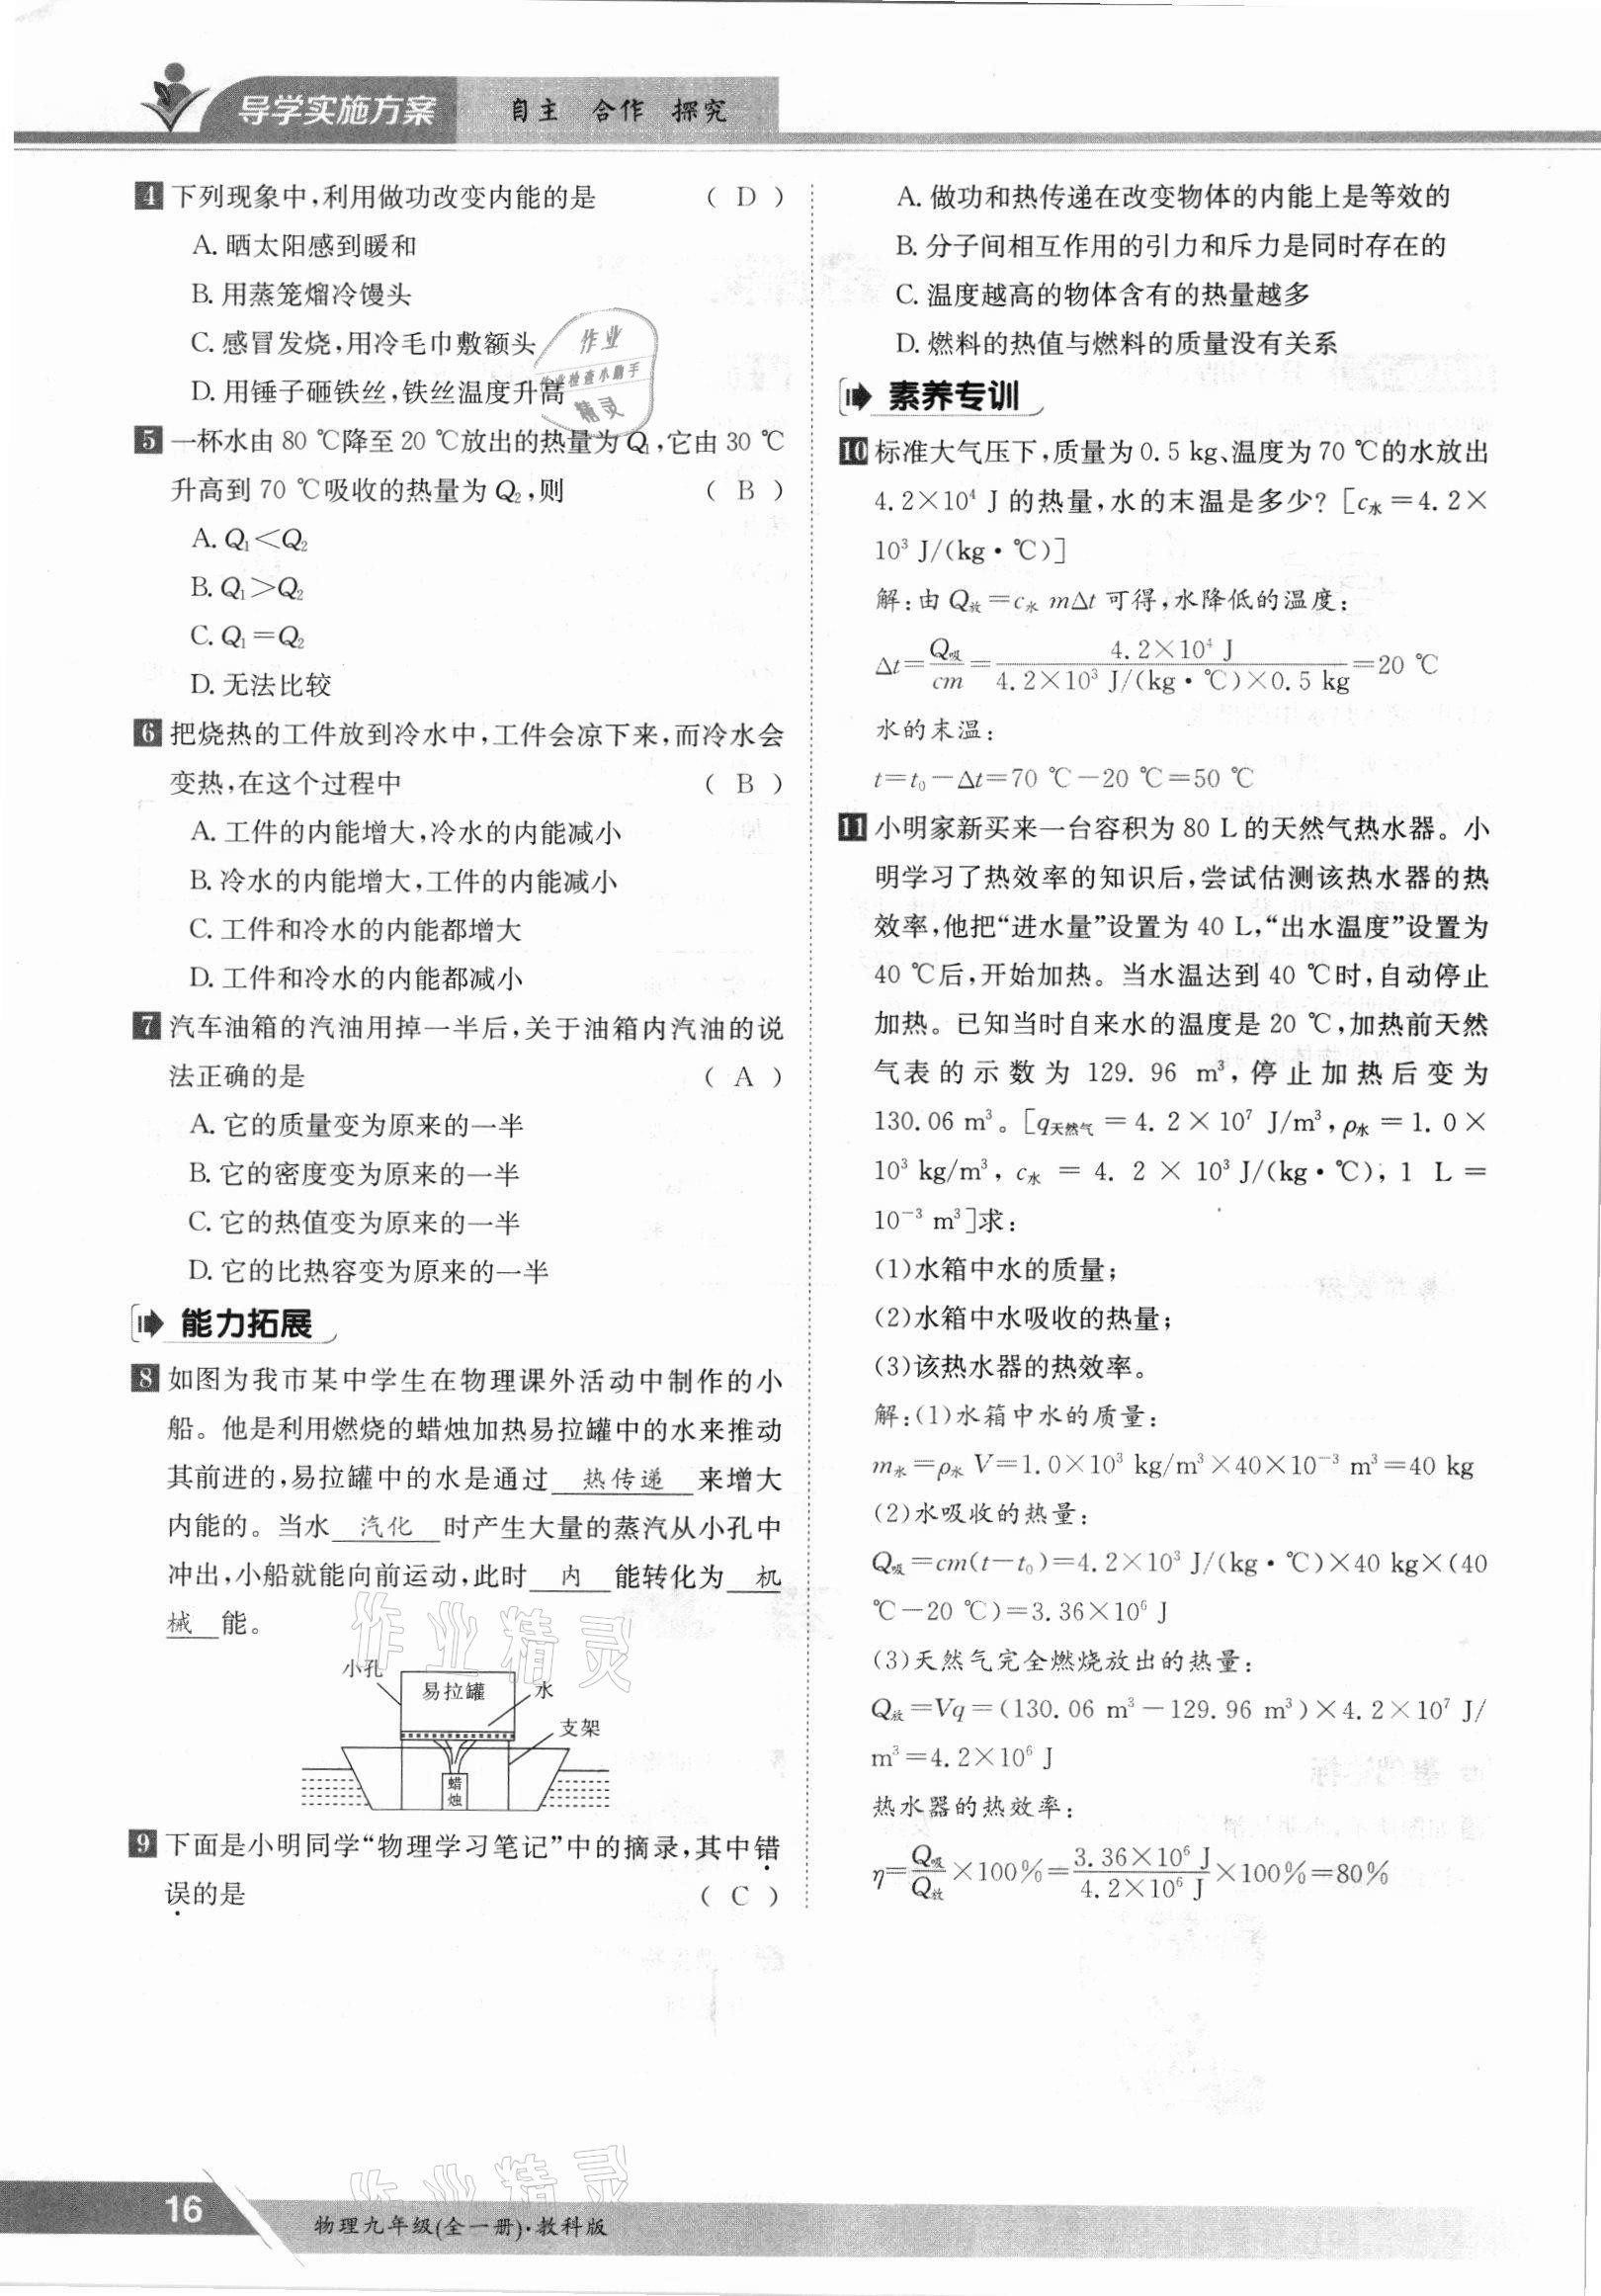 导学实施方案 自主 合作 探究
4 下列现象中,利用做功改变内能的是 ( D )
A. 晒太阳感到暖和
B. 用蒸笼熘冷馒头
C. 感冒发烧,用冷毛巾敷额头
D. 用锤子砸铁丝,铁丝温度升高
作业
作业检查小助手
精灵
5 一杯水由 80 ℃降至 20 ℃放出的热量为 Q₁,它由 30 ℃
升高到 70 ℃吸收的热量为 Q₂,则 ( B )
A. Q₁＜Q₂
B. Q₁＞Q₂
C. Q₁＝Q₂
D. 无法比较
6 把烧热的工件放到冷水中,工件会凉下来,而冷水会
变热,在这个过程中 ( B )
A. 工件的内能增大,冷水的内能减小
B. 冷水的内能增大,工件的内能减小
C. 工件和冷水的内能都增大
D. 工件和冷水的内能都减小
7 汽车油箱的汽油用掉一半后,关于油箱内汽油的说
法正确的是 ( A )
A. 它的质量变为原来的一半
B. 它的密度变为原来的一半
C. 它的热值变为原来的一半
D. 它的比热容变为原来的一半
能力拓展
8 如图为我市某中学生在物理课外活动中制作的小
船。他是利用燃烧的蜡烛加热易拉罐中的水来推动
其前进的,易拉罐中的水是通过 热传递 来增大
内能的。当水 汽化 时产生大量的蒸汽从小孔中
冲出,小船就能向前运动,此时 内 能转化为 机
械 能。
作业精灵
小孔
易拉罐
水
支架
蜡烛
9 下面是小明同学“物理学习笔记”中的摘录,其中错
误的是 ( C )
A. 做功和热传递在改变物体的内能上是等效的
B. 分子间相互作用的引力和斥力是同时存在的
C. 温度越高的物体含有的热量越多
D. 燃料的热值与燃料的质量没有关系
素养专训
10 标准大气压下,质量为 0.5 kg、温度为 70 ℃的水放出
4.2×10⁴ J 的热量,水的末温是多少? [c水＝4.2×
10³ J/(kg·℃)]
解:由 Q放＝c水 mΔt 可得,水降低的温度:
Δt＝Q吸/cm＝4.2×10⁴ J/4.2×10³ J/(kg·℃)×0.5 kg＝20 ℃
水的末温:
t＝t₀－Δt＝70 ℃－20 ℃＝50 ℃
11 小明家新买来一台容积为 80 L 的天然气热水器。小
明学习了热效率的知识后,尝试估测该热水器的热
效率,他把“进水量”设置为 40 L,“出水温度”设置为
40 ℃后,开始加热。当水温达到 40 ℃时,自动停止
加热。已知当时自来水的温度是 20 ℃,加热前天然
气表的示数为 129.96 m³,停止加热后变为
130.06 m³。[q天然气＝4.2×10⁷ J/m³,ρ水＝1.0×
10³ kg/m³,c水＝4.2×10³ J/(kg·℃),1 L＝
10⁻³ m³]求:
(1)水箱中水的质量;
(2)水箱中水吸收的热量;
(3)该热水器的热效率。
解:(1)水箱中水的质量:
m水＝ρ水 V＝1.0×10³ kg/m³×40×10⁻³ m³＝40 kg
(2)水吸收的热量:
Q吸＝cm(t－t₀)＝4.2×10³ J/(kg·℃)×40 kg×(40
℃－20 ℃)＝3.36×10⁶ J
(3)天然气完全燃烧放出的热量:
Q放＝Vq＝(130.06 m³－129.96 m³)×4.2×10⁷ J/
m³＝4.2×10⁶ J
热水器的热效率:
η＝Q吸/Q放×100%＝3.36×10⁶ J/4.2×10⁶ J×100%＝80%
作业精灵
16
物理九年级(全一册)·教科版